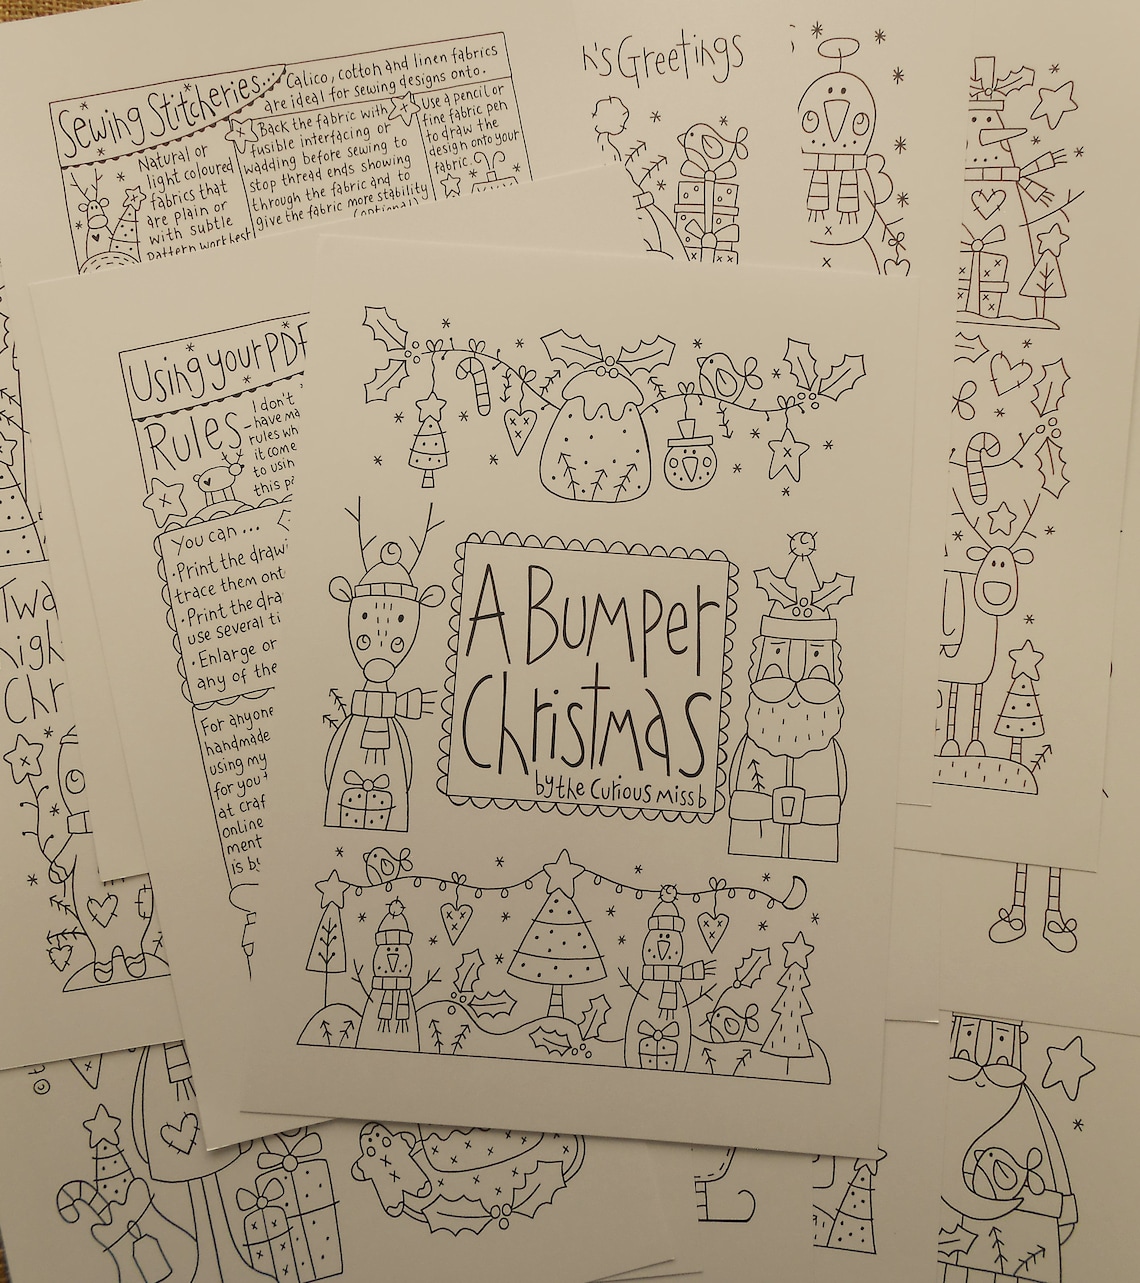 Sewing Stitcheries...
Calico, cotton and linen fabrics
are ideal for sewing designs onto.
Natural or
light coloured
fabrics that
are plain or
with subtle
pattern work best
Back the fabric with
fusible interfacing or
wadding before sewing to
stop thread ends showing
through the fabric and to
give the fabric more stability
(optional)
Use a pencil or
fine fabric pen
to draw the
design onto your
fabric.
Greetings
Using your PDF
Rules-
I don't
have ma
rules wh
it come
to usin
this pa
You can ...
•Print the draw
trace them ont
•Print the dra
use several ti
•Enlarge or
any of the
For anyone
handmade
using my
for you
at craf
online
ment
is b
Two
Chr
A Bumper
Christmas
by the Curious Miss b